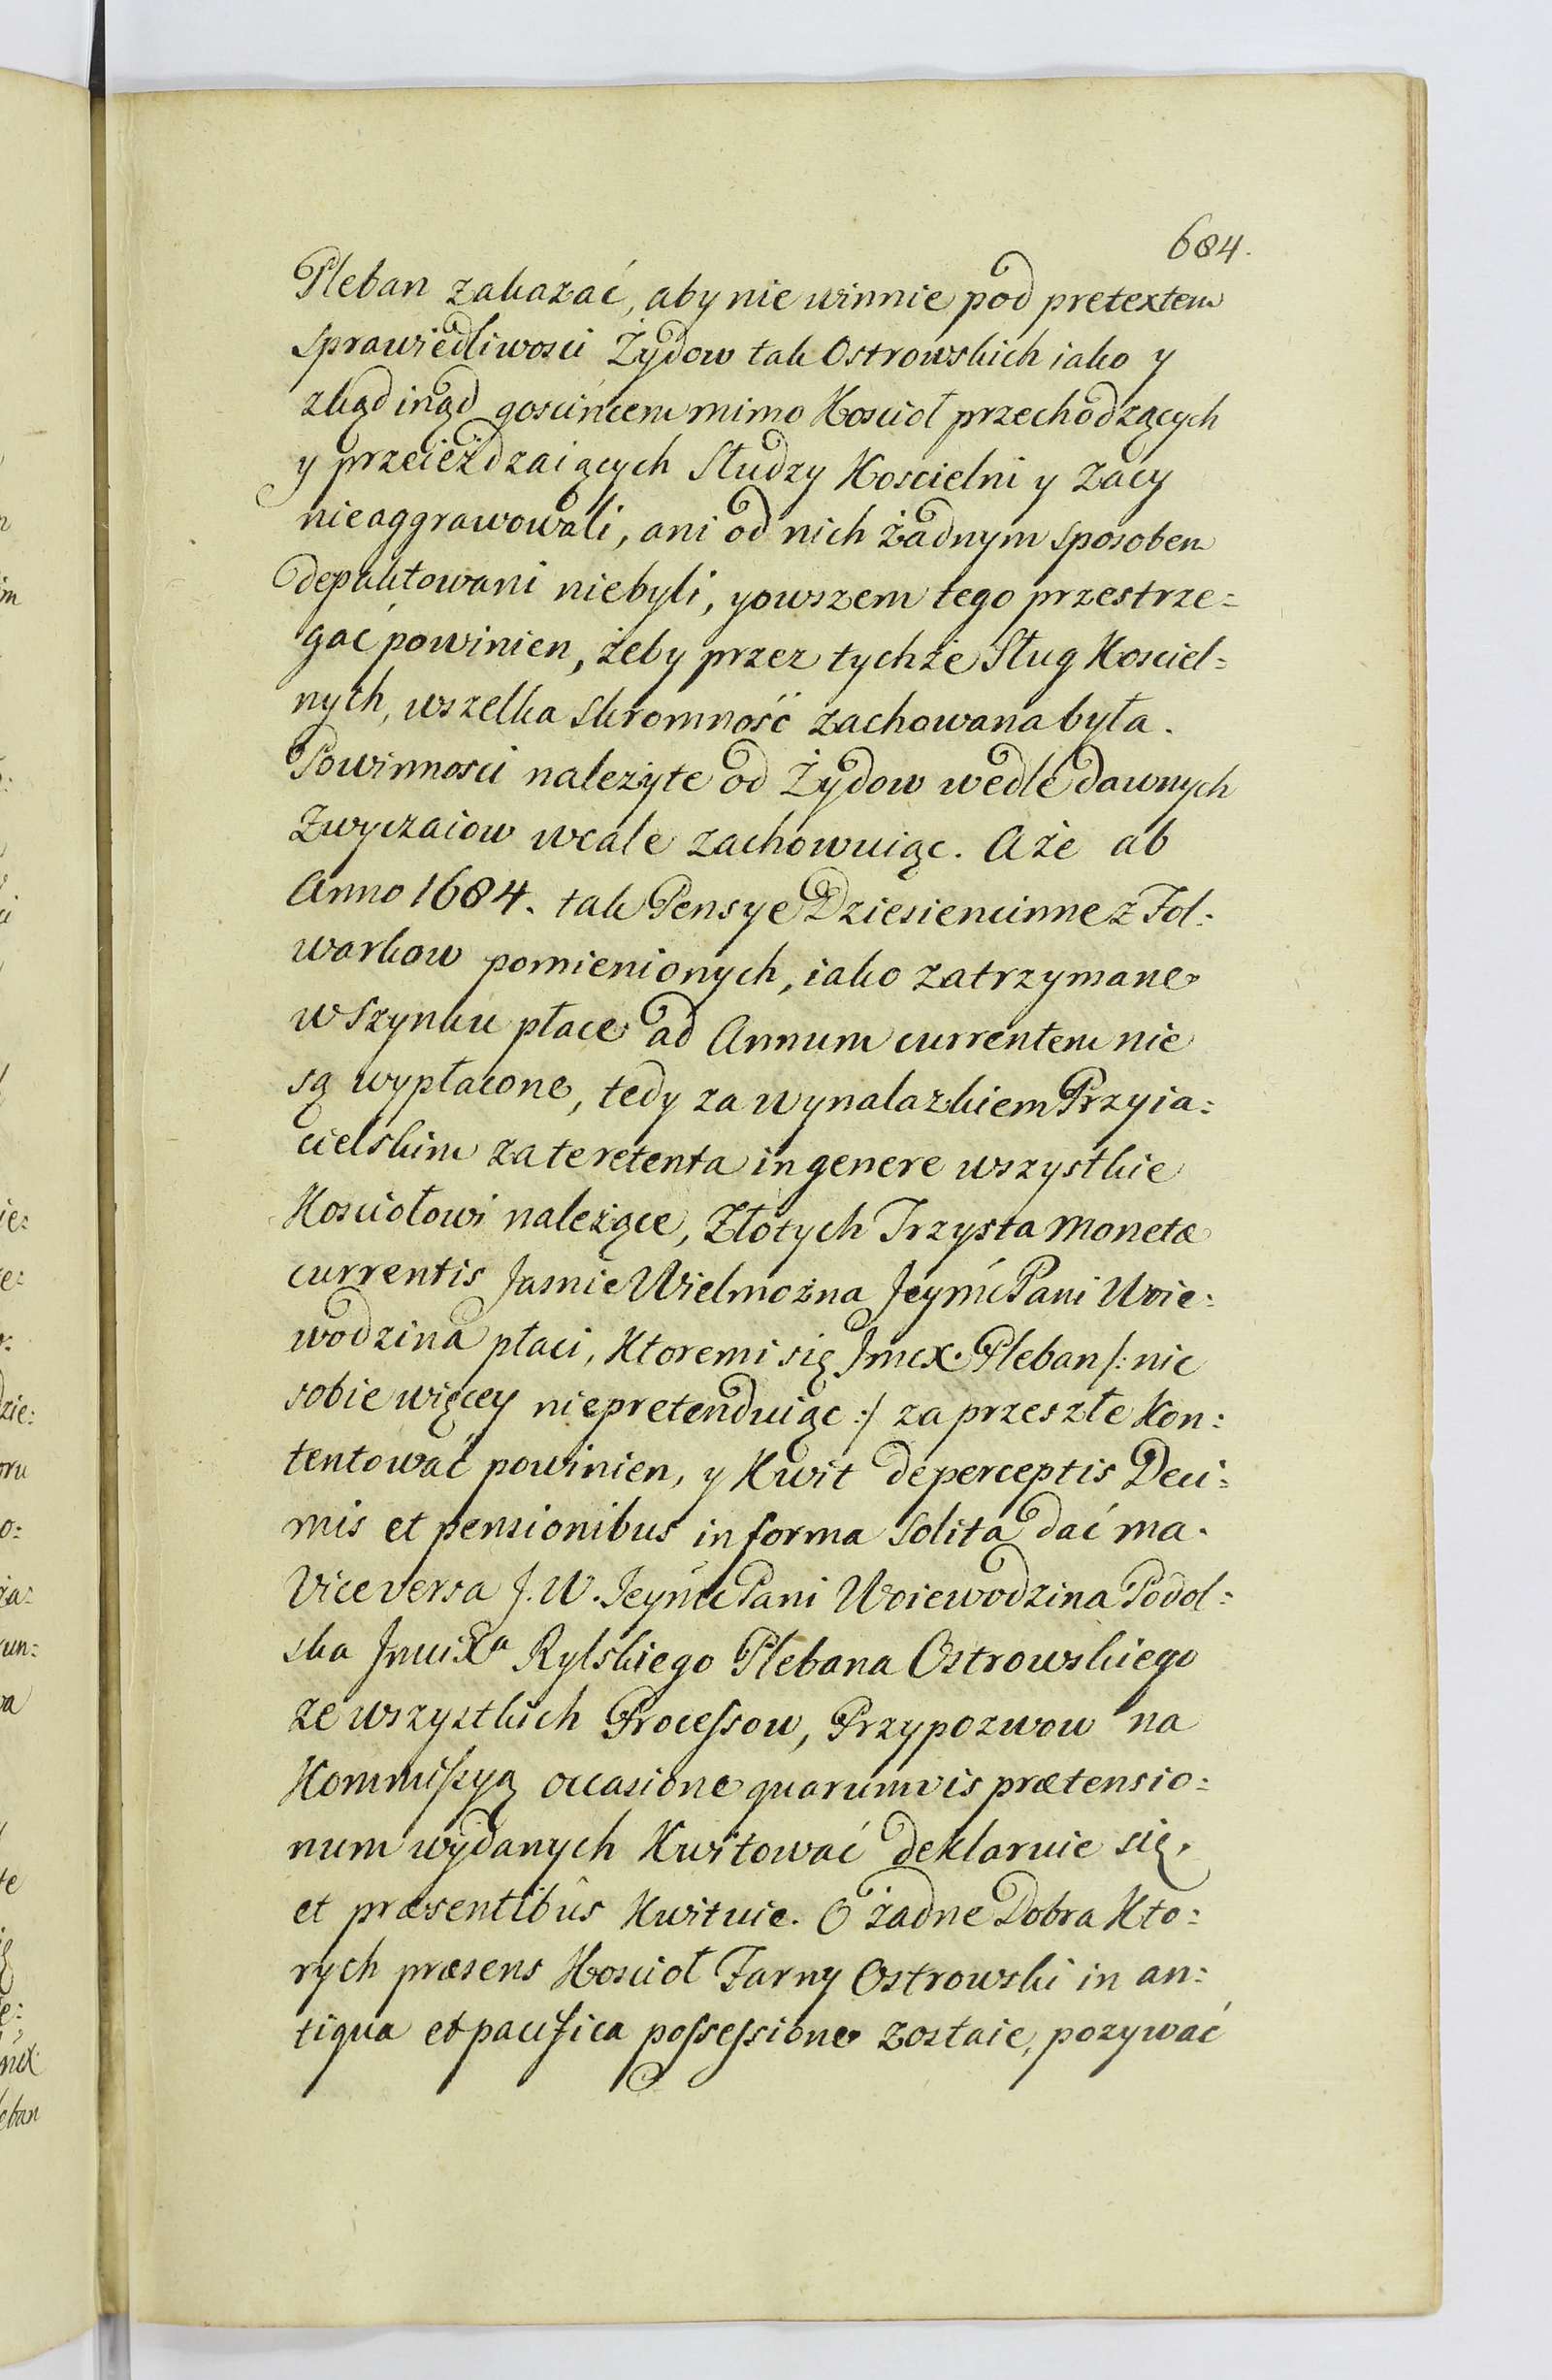 684.
Pleban zakazać, aby nie winnie pod pretextem
sprawiedliwosci Żydow tak Ostrowskich iako y
zkąd inąd gosćińcem mimo Koscioł przechodzących
y przeieżdzaiących Słudzy Koscielni y Zacy
nieaggrawowali, ani od nich żadnym sposobem
depaktowani niebyli, yowszem tego przestrze=
gać powinien, żeby przez tychże Sług Kosciel=
nych, wszelka skromność zachowana była.
Powinnosci należyte od Żydow wedle dawnych
Zwyczaiow wcale zachowuiąc. Aże ab
Anno 1684. tak Pensye Dziesiencinne z Fol:
warkow pomienionych, iako zatrzymane
w Szynku płace ad Annum currentem nie
są wypłacone, tedy za wynalazkiem Przyia:
cielskim za te retenta in genere wszystkie
Kosciołowi należące, Złotych Trzysta monetæ
currentis Jasnie Wielmożna Jeymć Pani Woie:
wodzina płaci, Ktoremi się Jmcx. Pleban /: nic
sobie więcey niepretenduiąc :/ za przeszłe kon:
tentować powinien, y Kwit de perceptis Deci:
mis et pensionibus in forma solita dać ma.
Vice versa J. W. Jeymć Pani Woiewodzina Podol:
ska JmciXa Rylskiego Plebana Ostrowskiego
ze wszystkich Processow, Przypozwow na
Kommissyą occasione quarumvis prætensio:
num wydanych Kwitować deklaruie się,
et præsentibûs Kwituie. O żadne Dobra Kto:
rych præsens Koscioł Farny Ostrowski in an:
tiqua et pacifica possessione zostaie, pozywać